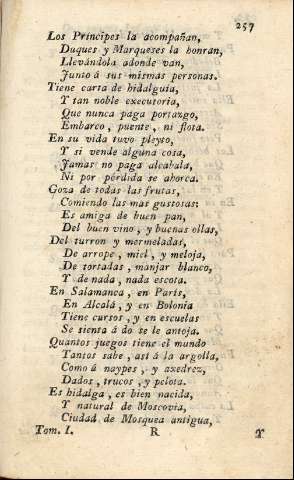 257
Los Príncipes la acompañan,
Duques y Marqueses la honran,
Llevándola adonde van,
Junto á sus mismas personas.
Tiene carta de hidalguia,
Y tan noble executoria,
Que nunca paga portazgo,
Embarco, puente, ni flota.
En su vida tuvo pleyto,
Y si vende alguna cosa,
Jamas no paga alcabala,
Ni por pérdida se ahorca.
Goza de todas las frutas,
Comiendo las mas gustosas:
Es amiga de buen pan,
Del buen vino, y buenas ollas,
Del turron y mermeladas,
De arrope, miel, y meloja,
De tortadas, manjar blanco,
Y de nada, nada escota.
En Salamanca, en París,
En Alcalá, y en Bolonia
Tiene cursos, y en escuelas
Se sienta á do se le antoja.
Quantos juegos tiene el mundo
Tantos sabe, así á la argolla,
Como á naypes, y axedrez,
Dados, trucos, y pelota.
Es hidalga, es bien nacida,
Y natural de Moscovia,
Ciudad de Mosquea antigua,
Tom. I. R Y